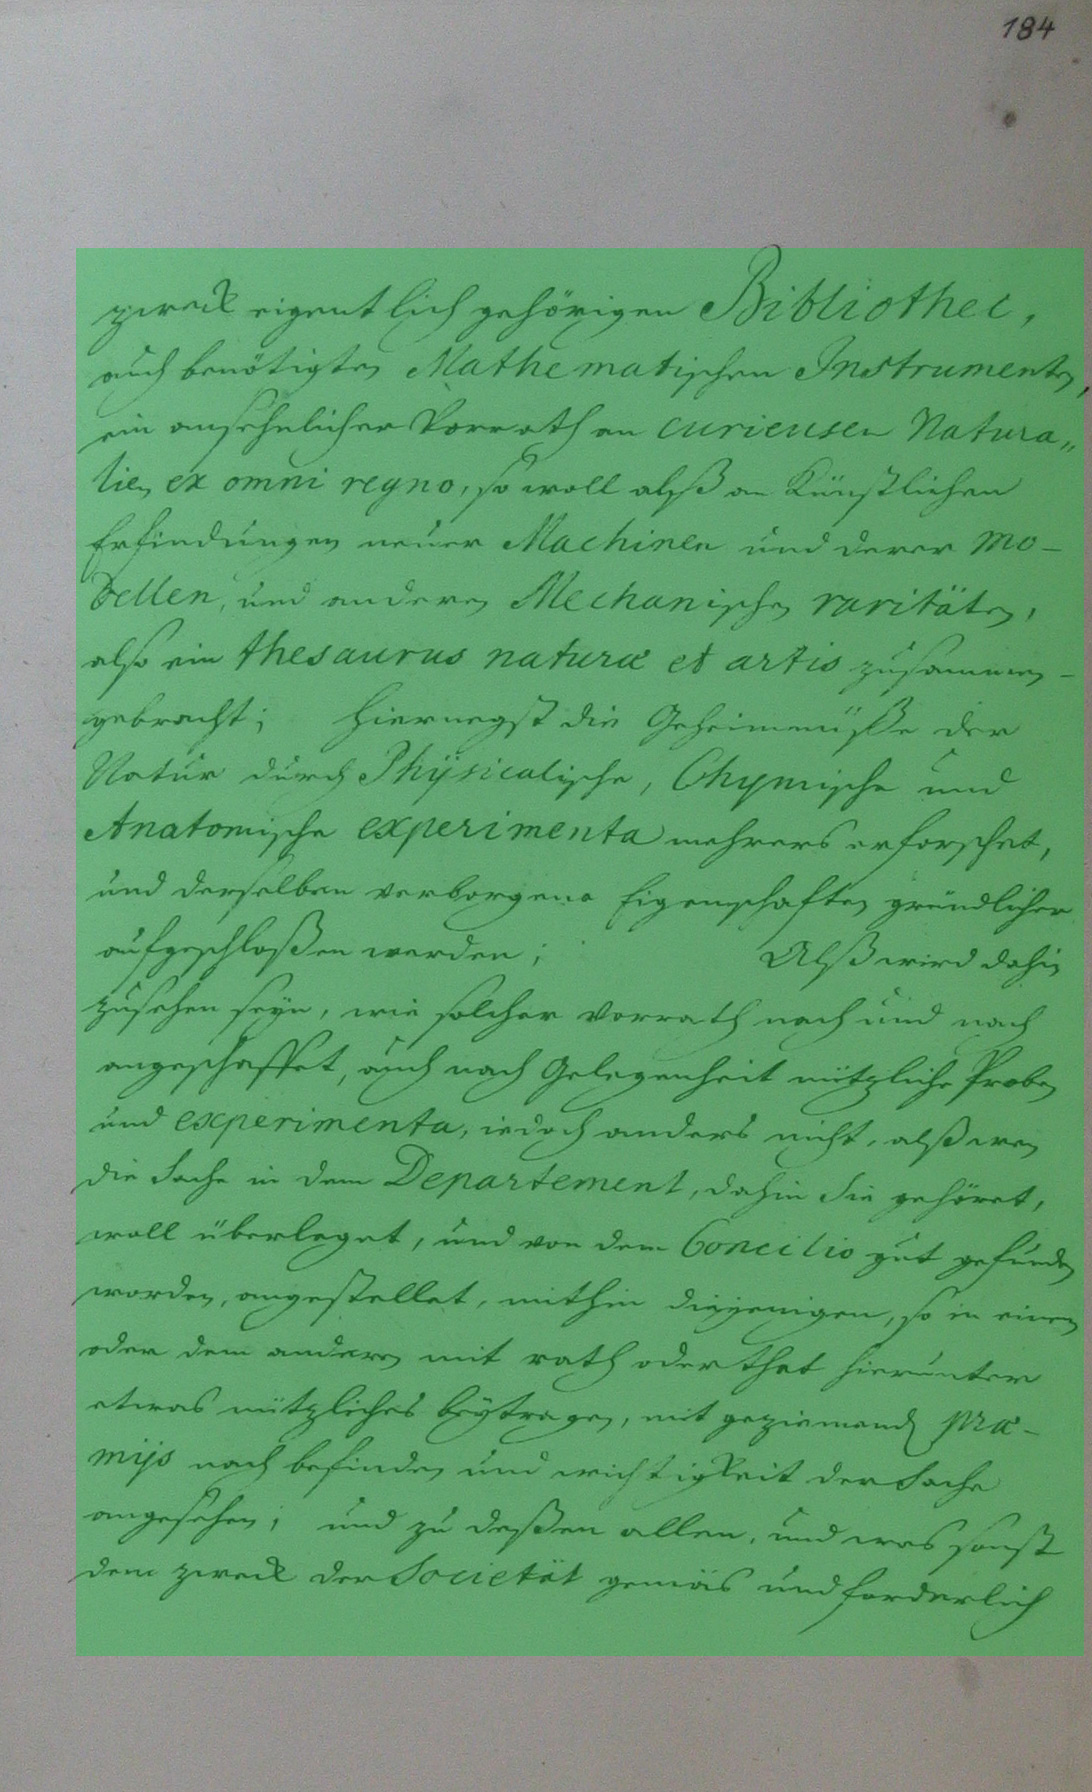 184
zweck eigentlich gehörigen Bibliothec,
auch benötigten Mathematischen Instrumenten,
ein ansehnlicher Vorrath an curieusen Natura„
lien ex omni regno, so woll alß an Künstlichen
Erfindungen neuer Machinen und derer Mo-
dellen, und anderen Mechanischen raritäten,
also ein thesaurus naturæ et artis zusammen-
gebracht; hiernegst die Geheimnüße der
Natur durch Physicalische, Chymische und
Anatomische experimenta mehrers erforschet,
und derselben verborgene Eigenschafften gründlicher
aufgeschloßen werden; Alß wird dahin
zusehen seyn, wie solcher Vorrath nach und nach
angeschaffet, auch nach Gelegenheit nützliche Proben
und experimenta, iedoch anders nicht, alß wen
die Sache in dem Departement, dahin Sie gehöret,
woll überleget, und von dem Concilio gut gefunden
worden, angestellet, mithin diejenigen, so in einem
oder dem anderen mit rath oder that hierunter
etwas nützliches beytragen, mit geziemend præ-
mijs nach befinden und wichtigkeit der Sache
angesehen; und zu deßen allen, und was sonst
dem zweck der Societät gemäs und forderlich